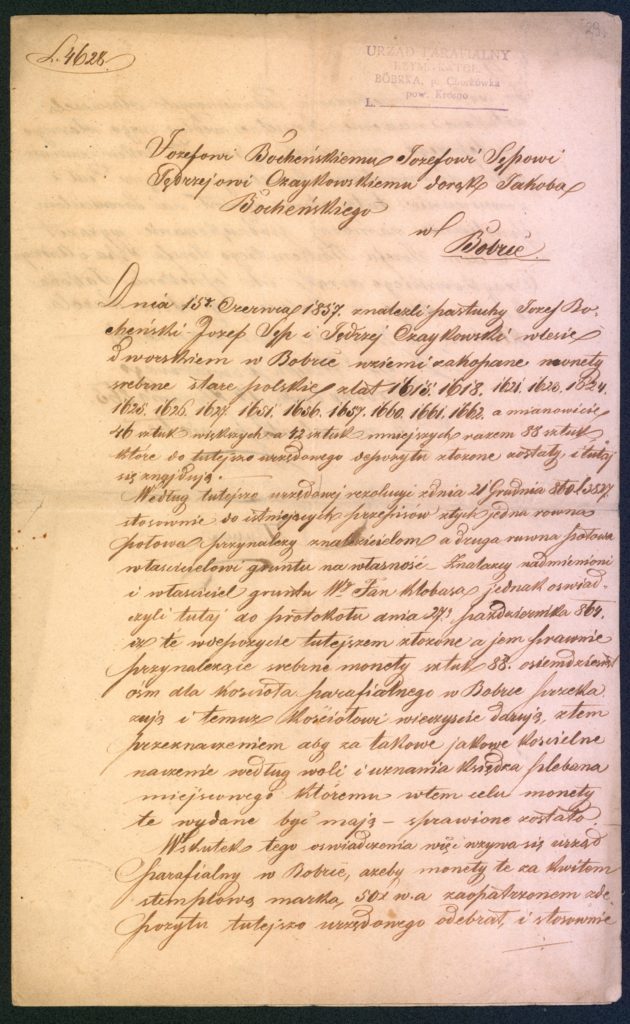 L. 4628.
29
URZĄD PARAFIALNY
RZYM. KATOL.
BÓBRKA, p. Chorkówka
pow. Krosno
L.
Jozefowi Bocheńskiemu Jozefowi Sępowi
Jędrzejowi Czaykowskiemu dorąk Jakoba
Bocheńskiego
w
Bóbrce.
Dnia 15go Czerwca 1857. znalezli pastuchy Jozef Bo-
cheński Jozef Sęp i Jędrzej Czaykowski wlesie
dworskiem w Bobrce wziemi zakopane monety
srebrne stare polskie zlat 1615. 1618. 1621. 1623. 1624.
1625. 1626. 1627. 1651. 1656. 1657. 1660. 1661. 1662. a mianowicie
46 sztuk większych a 42 sztuk mniejszych razem 88 sztuk
które do tutejszo urzędowego depozytu złozone zostały i tutaj
się znajdują.
Według tutejszo urzędowej rezolucyi zdnia 21 Grudnia 860 l. 3527
stosownie do istniejących przepisów ztych jedna rowna
połowa przynalezy znalezcielom a druga rowna połowa
właścicielowi gruntu na własność. Znalazcy nadmienieni
i właściciel gruntu Wny Jan Kłobasa jednak oswiad-
czyli tutaj do protokołu dnia 27. pazdziernika 864.
iz te wdepozycie tutejszem złozone a jem prawnie
przynalezące srebrne monety sztuk 88. osiemdziesiąt
osm dla kościoła parafialnego w Bobrce przeka
zują i temuz Kościołowi wieczyscie darują ztem
przeznaczeniem aby za takowe jakowe koscielne
naczenie według woli i uznania Księdza plebana
miejscowego któremu wtem celu monety
te wydane być mają – sprawione zostało.
Wskutek tego oswiadczenia więc wzywa się urząd
parafialny w Bobrce, azeby monety te za kwitem
stemplową marką 50x w.a zaopatrzonem zde-
pozytu tutejszo urzędowego odebrał, i stosownie